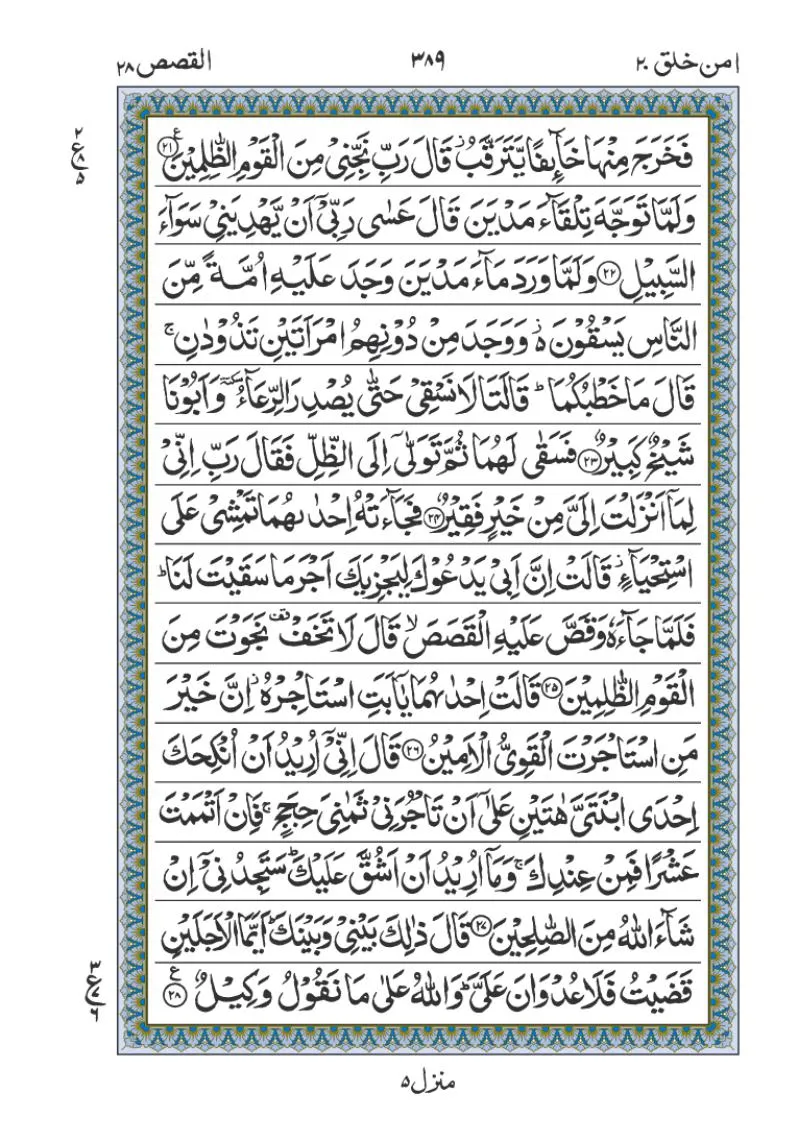 امن خلق ۲۰
۳۸۹
القصص ۲۸
فَخَرَجَ مِنْهَا خَآىِٕفًا یَّتَرَقَّبُ ؗ قَالَ رَبِّ نَجِّنِیْ مِنَ الْقَوْمِ الظّٰلِمِیْنَ ۲۱ ع
۲ ع ۸ ۵
وَلَمَّا تَوَجَّهَ تِلْقَآءَ مَدْیَنَ قَالَ عَسٰی رَبِّیْۤ اَنْ یَّهْدِیَنِیْ سَوَآءَ
السَّبِیْلِ ۲۲ وَلَمَّا وَرَدَ مَآءَ مَدْیَنَ وَجَدَ عَلَیْهِ اُمَّةً مِّنَ
النَّاسِ یَسْقُوْنَ ۬ە۬ ؗ وَوَجَدَ مِنْ دُوْنِهِمُ امْرَاَتَیْنِ تَذُوْدٰنِ ۚ
قَالَ مَا خَطْبُكُمَا ؕ قَالَتَا لَا نَسْقِیْ حَتّٰی یُصْدِرَ الرِّعَآءُ ٚ وَاَبُوْنَا
شَیْخٌ كَبِیْرٌ ۲۳ فَسَقٰی لَهُمَا ثُمَّ تَوَلّٰۤی اِلَی الظِّلِّ فَقَالَ رَبِّ اِنِّیْ
لِمَاۤ اَنْزَلْتَ اِلَیَّ مِنْ خَیْرٍ فَقِیْرٌ ۲۴ فَجَآءَتْهُ اِحْدٰىهُمَا تَمْشِیْ عَلَی
اسْتِحْیَآءٍ ؗ قَالَتْ اِنَّ اَبِیْ یَدْعُوْكَ لِیَجْزِیَكَ اَجْرَ مَا سَقَیْتَ لَنَا ؕ
فَلَمَّا جَآءَهٗ وَقَصَّ عَلَیْهِ الْقَصَصَ ۙ قَالَ لَا تَخَفْ وقف۫ نَجَوْتَ مِنَ
الْقَوْمِ الظّٰلِمِیْنَ ۲۵ قَالَتْ اِحْدٰىهُمَا یٰۤاَبَتِ اسْتَاْجِرْهُ ؗ اِنَّ خَیْرَ
مَنِ اسْتَاْجَرْتَ الْقَوِیُّ الْاَمِیْنُ ۲۶ قَالَ اِنِّیْۤ اُرِیْدُ اَنْ اُنْكِحَكَ
اِحْدَی ابْنَتَیَّ هٰتَیْنِ عَلٰۤی اَنْ تَاْجُرَنِیْ ثَمٰنِیَ حِجَجٍ ۚ فَاِنْ اَتْمَمْتَ
عَشْرًا فَمِنْ عِنْدِكَ ۚ وَمَاۤ اُرِیْدُ اَنْ اَشُقَّ عَلَیْكَ ؕ سَتَجِدُنِیْۤ اِنْ
شَآءَ اللّٰهُ مِنَ الصّٰلِحِیْنَ ۲۷ قَالَ ذٰلِكَ بَیْنِیْ وَبَیْنَكَ ؕ اَیَّمَا الْاَجَلَیْنِ
قَضَیْتُ فَلَا عُدْوَانَ عَلَیَّ ؕ وَاللّٰهُ عَلٰی مَا نَقُوْلُ وَكِیْلٌ ۲۸ ع
۳ ع ۷ ۶
منزل ۵